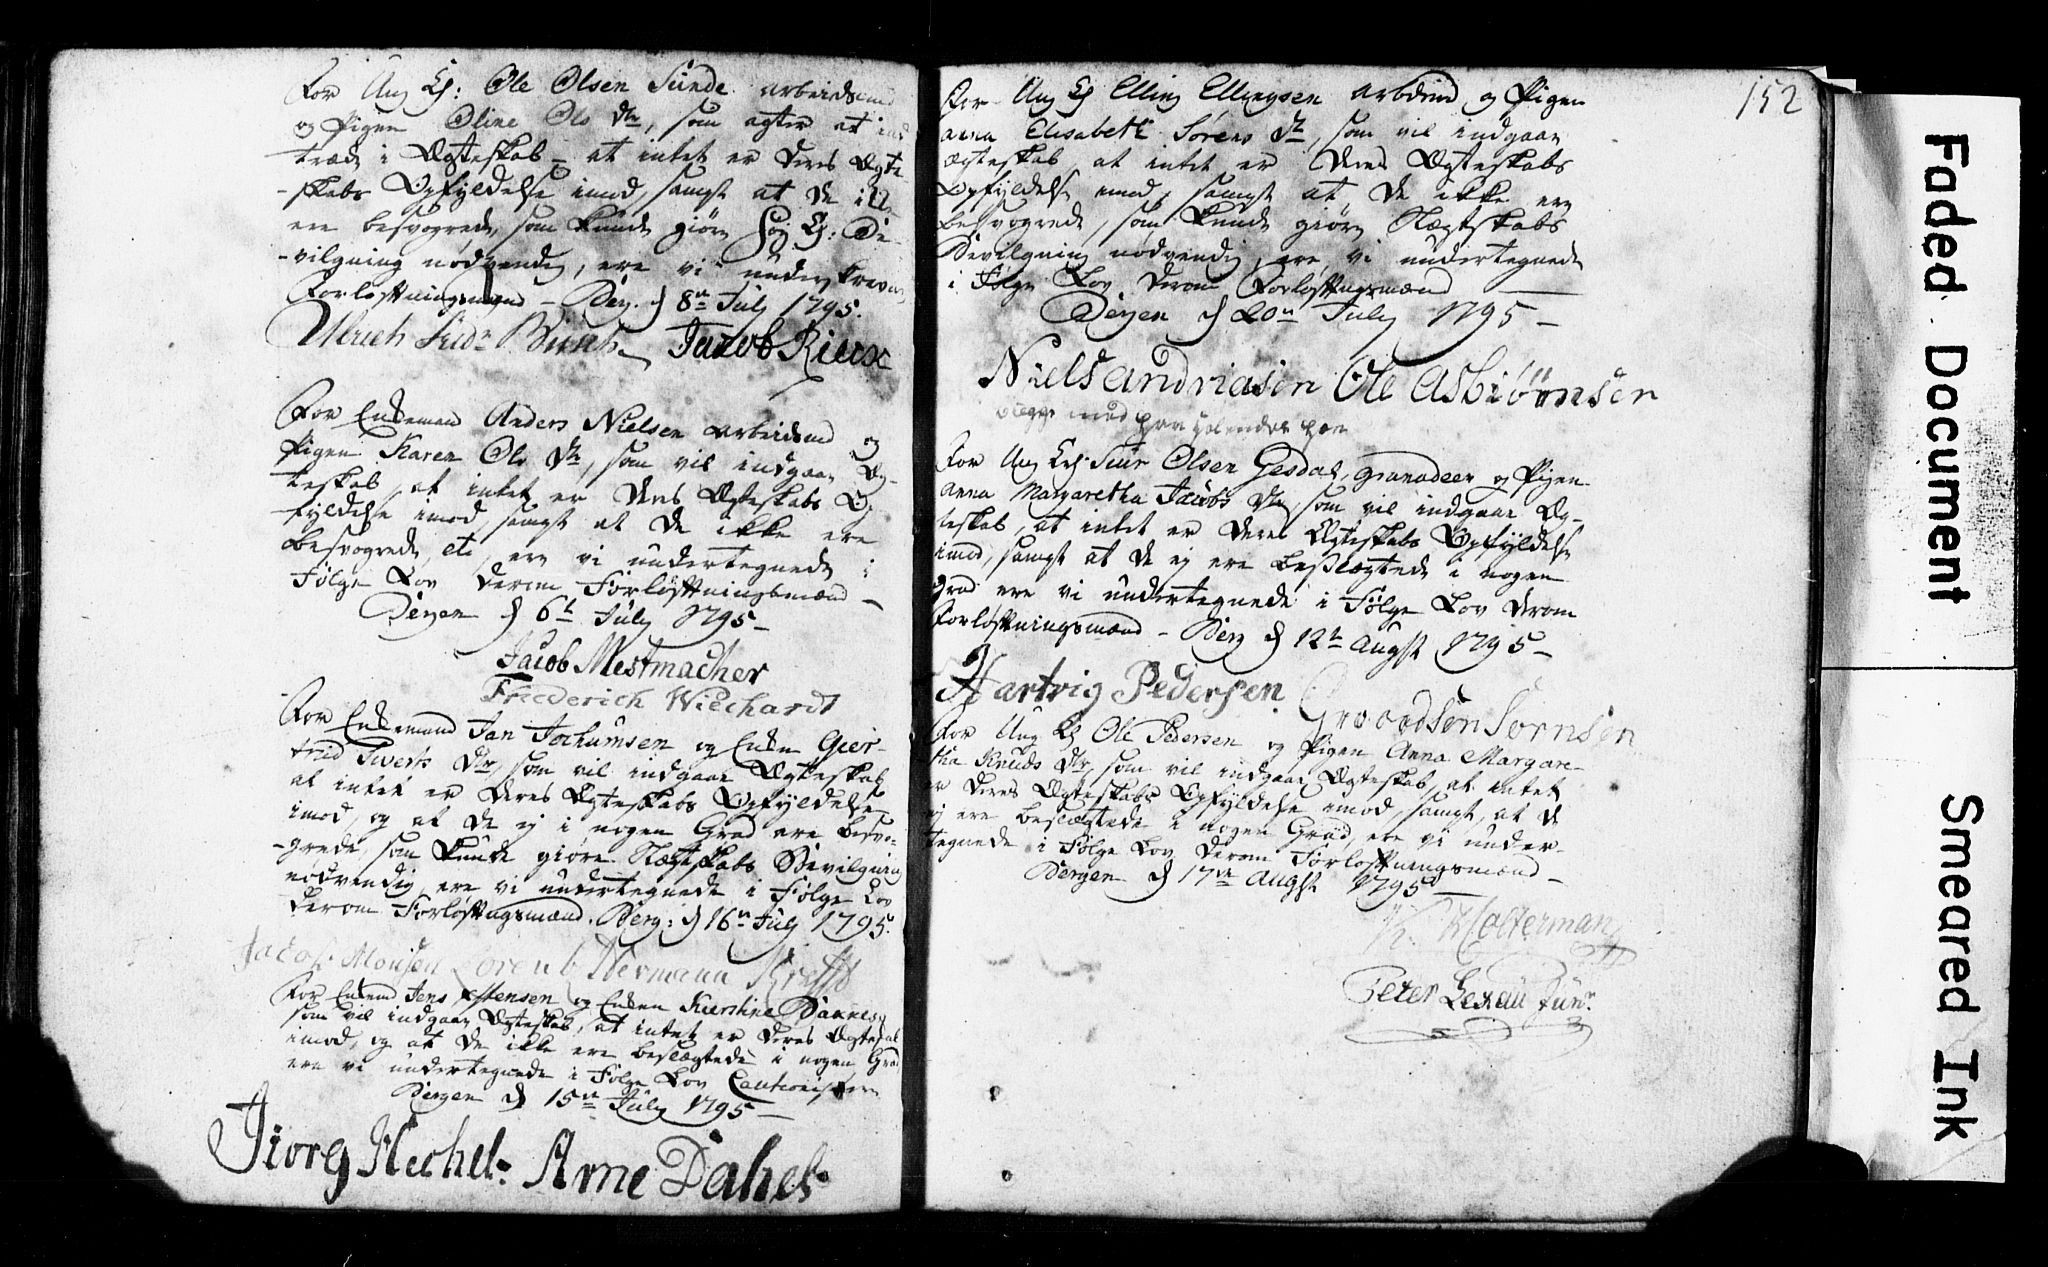 For Ung K: Ole Olsen Sunde arbeidsmd
og Pigen Oline Ols dtr, som agter at ind
træde i Ægteskab at intet er deres Ægte
-skabs Opfyldelse imod, samgt at de ikke
ere besvogrede, som kunde giøre Kg: Be-
-vilgning nødvendig, ere vi underskrevne
Forløftningsmænd - Berg. d 8n July 1795.
Ulrich Frid. Jacob Rieux
For Enkemand Anders Nielsen arbeidsmd og
Pigen Karen Ols dtr, som vil indgaae Æg-
teskab, at intet er deres Ægteskabs Op
-fyldelse imod, samgt at de ikke ere
besvogrede etc, ere vi undertegnede i
Følge Lov derom Forløftningsmænd -
Bergen d 6t July 1795 -
Jacob Mestmacher
Friederich Wiechardt
For Enkemand Jan Jochumsen og Enken Gier-
trud Iwerts dtr, som vil indgaae Ægteskab
at intet er deres Ægteskabs Opfyldelse
imod, og at de ej i nogen Grad ere besvo-
-grede, som kunde giøre Bevilgning
nødvendig, ere vi undertegnede i Følge Lov
derom Forløftngsmænd. Berg: d 16n July 1795.
Jacob Monsen Lorentz Hermann Krafft
For Enkemd Jens Estensen og Enken Kierstine
som vil indgaae Ægteskab, at intet er deres Ægteskab
imod, og at de ikke ere beslægtede i nogen Grad
ere vi undertegnede i Følge Lov Cautionister
Bergen d 15n July 1795 -
Jiorg Hechel. Arne Dahel.
152
For Ung K Elling Ellingsen arbdmd og Pigen
anna Elisabeth Sørens dtr, som vil indgaae
ægteskab, at intet er deres Ægteskabs
Opfyldelse imod, samgt at de ikke ere
besvogrede, som kunde giøre
Bevilgning nødvendig, ere vi undertegnede
i Følge Lov derom Forløftngsmænd
Bergen d 20n July 1795 -
Niels andriasen Ole Asbiøörnsen
med paa
For Ung K: Siur Olsen Gesdal, granadeer og Pigen
anna Margaretha Jacobs dtr, som vil indgaae Æg-
teskab, at intet er deres Ægteskabs Opfyldelse
imod, samgt at de ej ere beslægtede i nogen
Grad ere vi undertegnede i Følge Lov derom
Forløftningsmænd - Berg d 12t Augst 1795 -
Hartvig Pedersen Sørnsen
For Ung K Ole Pedersen og Pigen Anna Margare-
tha Knuds dtr, som vil indgaae Ægteskab, at intet
er deres Ægteskabs Opfyldelse imod, samgt, at de
ej ere beslægtede i nogen Grad, ere vi under-
tegnede i Følge Lov derom Forløftningsmænd -
Bergen d 17de Augst 1795
K. Holterman
Peter Lexau Junr.
Faded Document
Smeared Ink